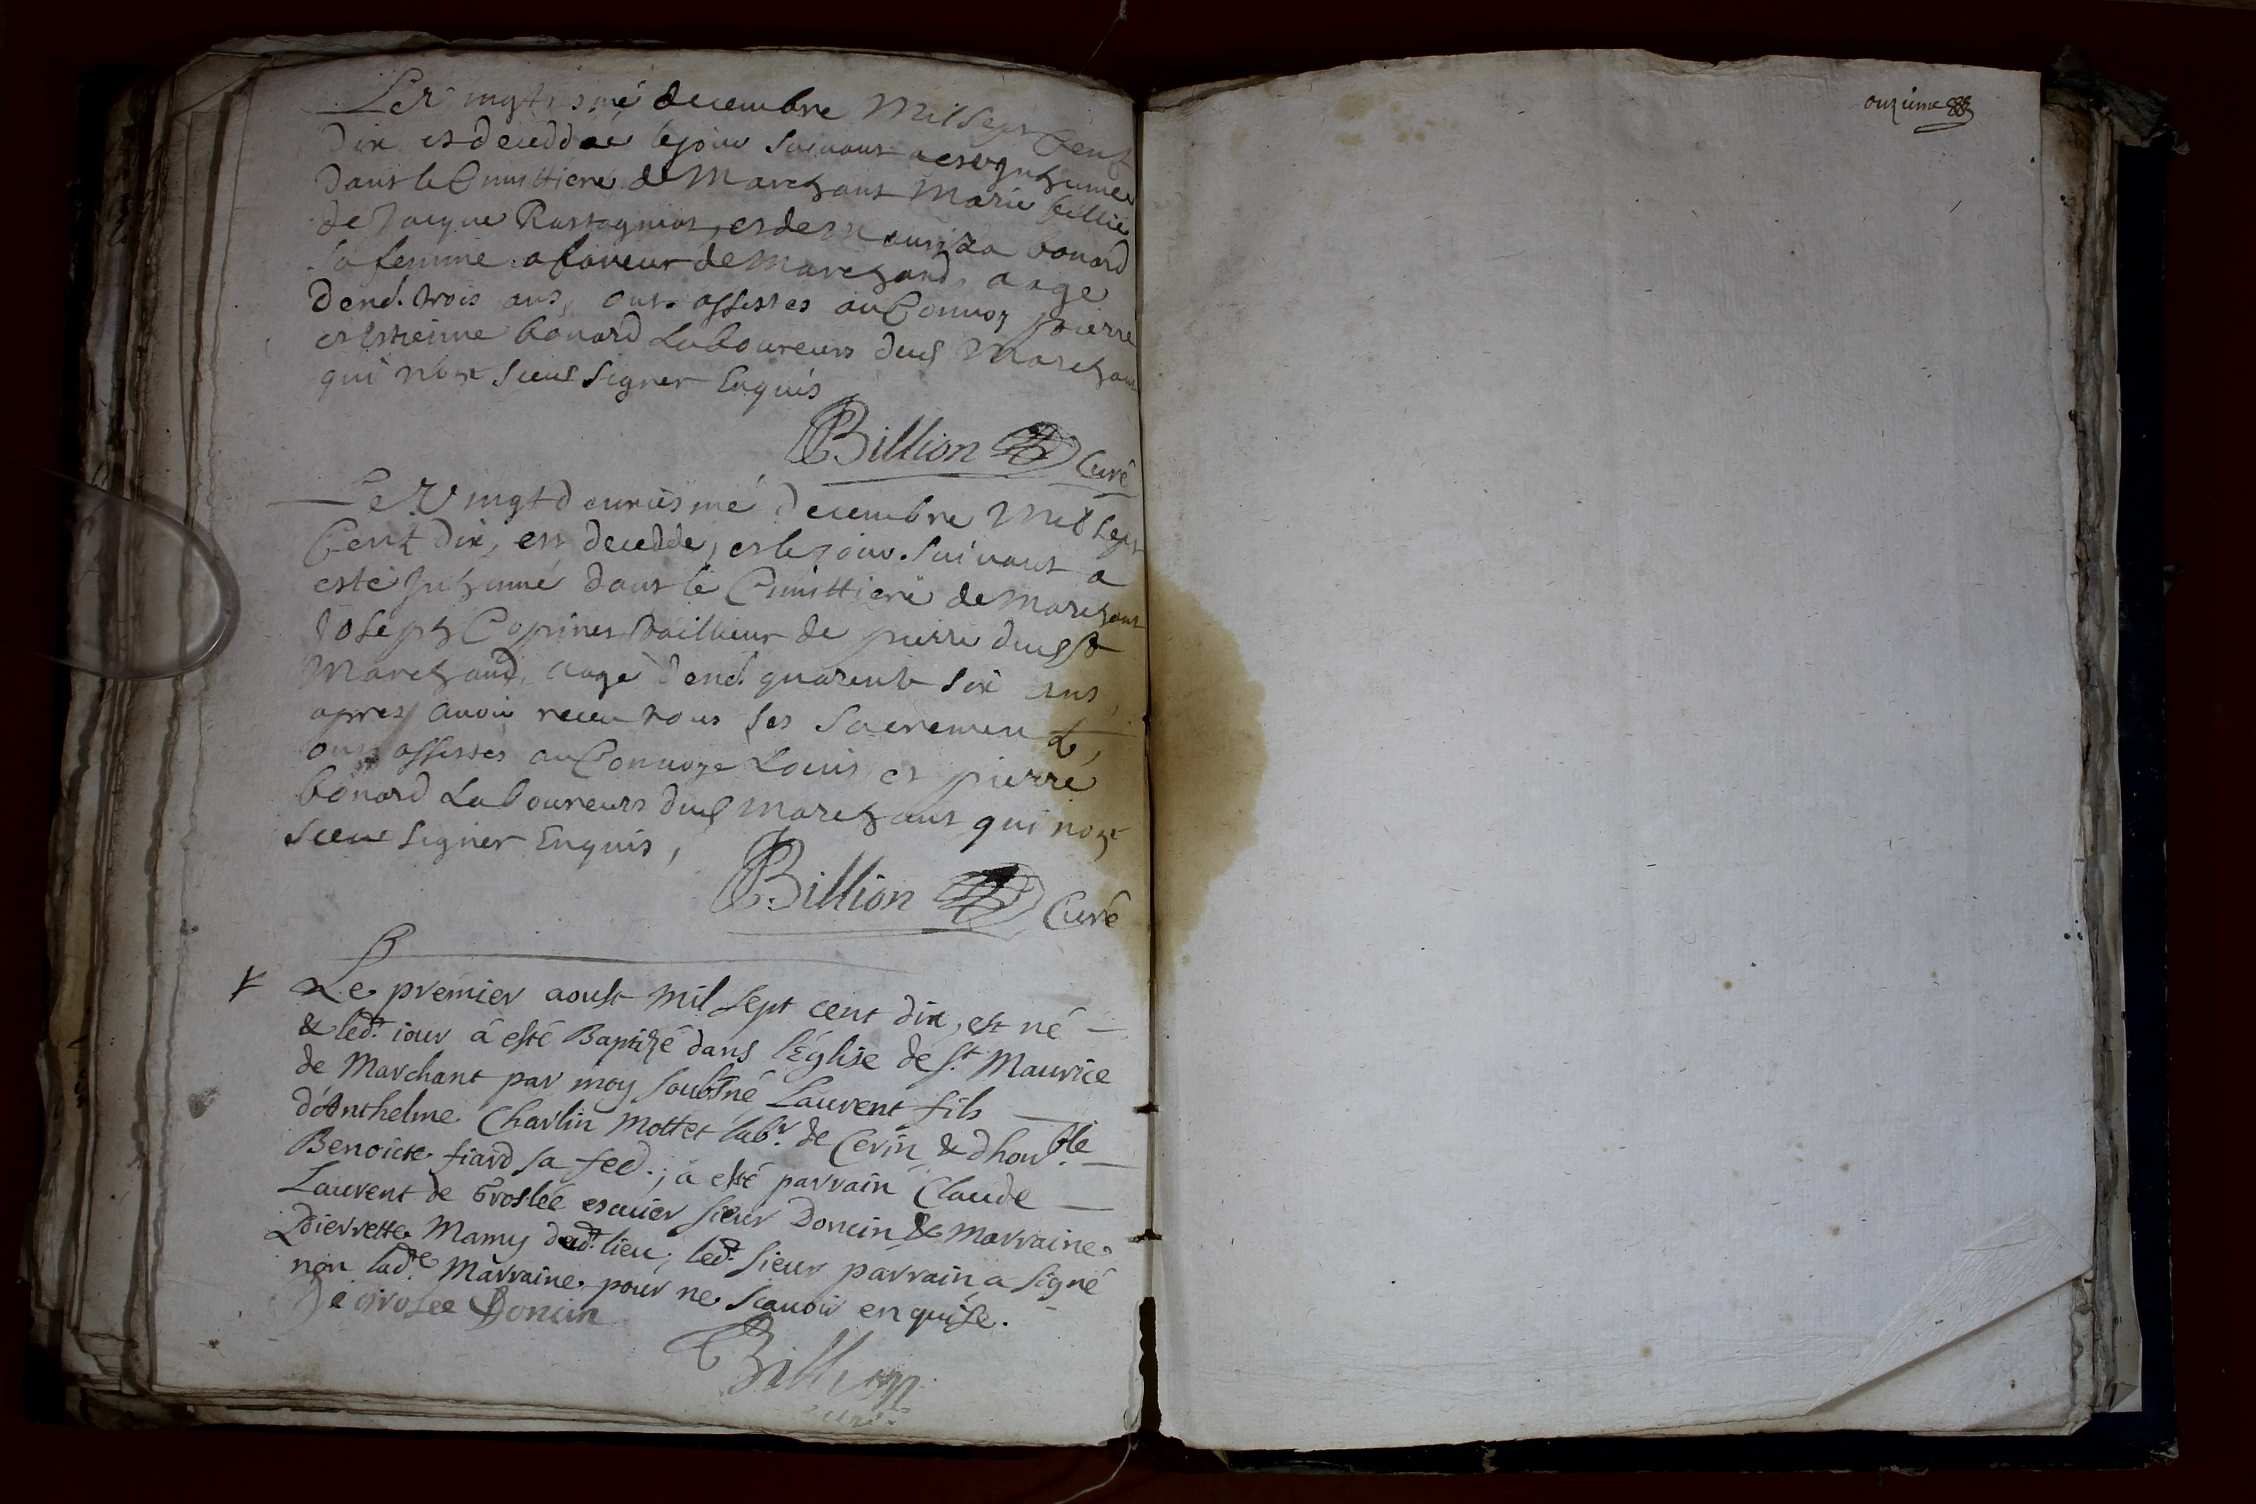 Le vingtiesme decembre Mil Sept Cent
Dix est deceddée le jour suivant a esté Inhumée
dans le Cimittiere de Marchant Marie fillie
de Jacque Rastagniot, et de bonard
sa femme a faveur de Marchand, aage
d'end. trois ans, ont assistes au Convoy pierre
et Estienne bonard Laboureurs dud Marchant
qui n'ont sceut signer Enquis
Billion Curé
Le Vingt deuxiesme decembre Mil Sept
Cent Dix, est deceddé, et le jour suivant a
esté Inhumé dans le Cimittiere de Marchant
Joseph Copinet tailleur de pierre dud
Marchand, aagé d'end. quarente six ans,
apres avoir receu tous ses sacrement
ont assistés au Convoye Louis et pierre
bonard Laboureurs dud Marchant qui n'ont
sceut signer Enquis,
Billion Curé
Le premier aoust mil sept cent dix, est né
& led.t iour à esté Baptizé dans l'Église de S.t Maurice
de Marchant par moy soubsné Laurent fils
d'Anthelme Charlin Mottet lab.r de Cerin & d'hon.ble
Benoicte fiard sa fed.; à esté parrain Claude
Laurent de Groslée escuier sieur Doncin & marraine
pierrette Mamy dud.t lieu; led.t sieur parrain a signé
non lad.e Marraine pour ne scavoir enquise.
De grolee Doncin
Billion
curé
onzieme